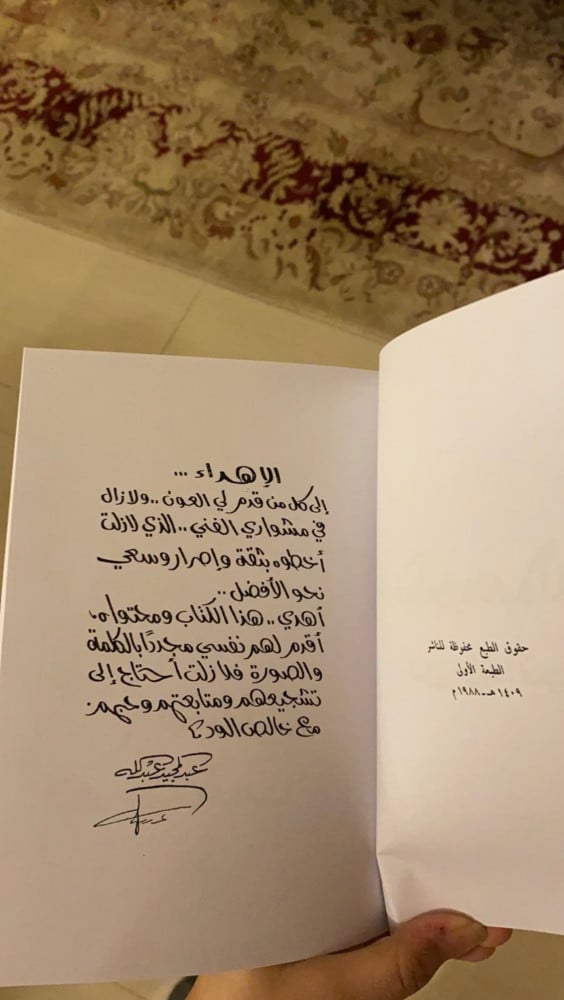 حقوق الطبع محفوظة للناشر
الطبعة الأولى
١٤٠٩ هـ - ١٩٨٨ م
الإهداء ...
إلى كل من قدم لي العون .. ولازال
في مشواري الفني .. الذي لازلت
أخطوه بثقة وإصرار وسعي
نحو الأفضل ..
أهدي .. هذا الكتاب ومحتواه،
أقدم لهم نفسي مجددًا بالكلمة
والصورة فلا زلت أحتاج إلى
تشجيعهم ومتابعتهم وحبهم.
مع خالص الود ؟
عبدالمجيد عبدالله